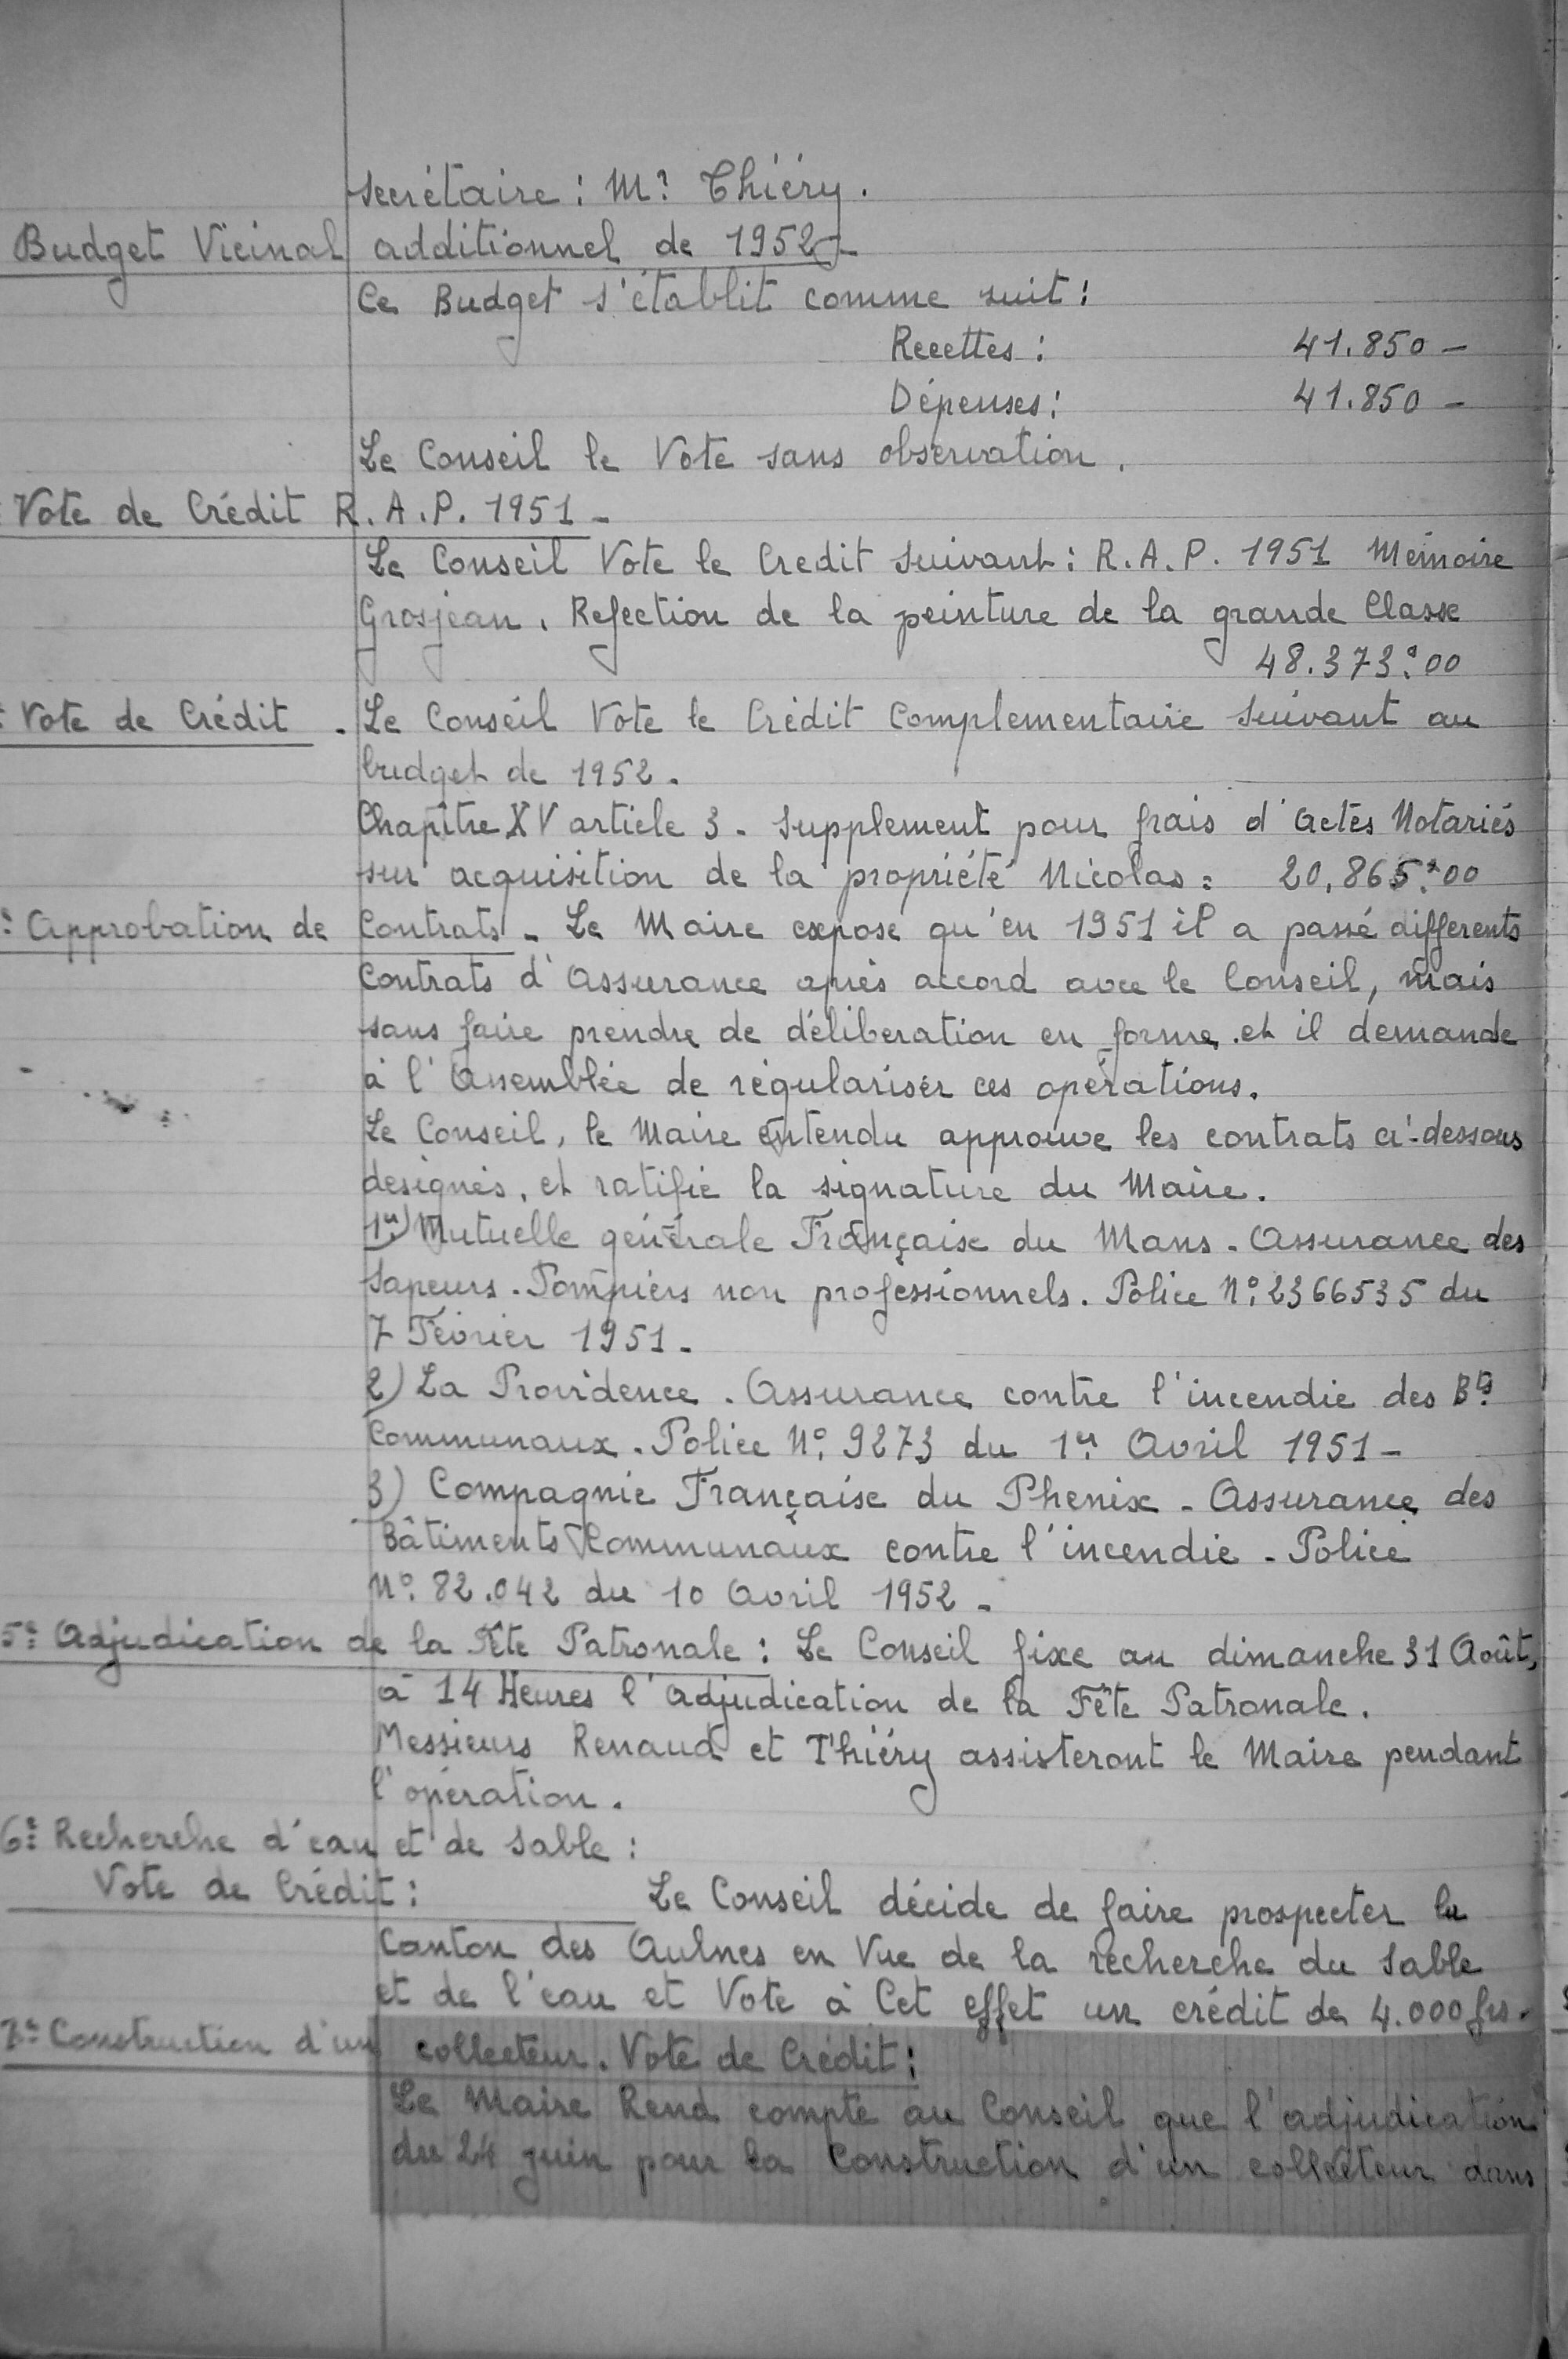 secrétaire : Mr Thiéry.
Budget Vicinal additionnel de 1952 -
Ce Budget s'établit comme suit :
Recettes : 41.850 -
Dépenses : 41.850 -
Le Conseil le Vote sans observation.
Vote de Crédit R.A.P. 1951 -
Le Conseil Vote le Credit suivant : R.A.P. 1951 Mémoire
Grosjean. Refection de la peinture de la grande Classe
48.373:00
Vote de Crédit . Le Conseil Vote le Crédit Complementaire suivant au
budget de 1952.
Chapître XV article 3 - supplement pour frais d'Actes Notariés
sur acquisition de la propriété Nicolas : 20,865:00
: Approbation de Contrats - Le Maire expose qu'en 1951 il a passé differents
Contrats d'Assurance après accord avec le Conseil, mais
sans faire prendre de déliberation en forme et il demande
à l'Assemblée de régulariser ces opérations.
Le Conseil, le Maire entendu approuve les contrats ci-dessous
designés, et ratifie la signature du Maire.
1er) Mutuelle générale Française du Mans - Assurance des
Sapeurs-Pompiers non professionnels. Police N° 2366535 du
7 Février 1951 -
2) La Providence - Assurance contre l'incendie des Bts
Communaux - Police N° 9273 du 1er Avril 1951 -
3) Compagnie Française du Phenix - Assurance des
Bâtiments Communaux contre l'incendie - Police
N° 82.042 du 10 Avril 1952 -
5° Adjudication de la Fête Patronale : Le Conseil fixe au dimanche 31 Août,
à 14 Heures l'adjudication de la Fête Patronale.
Messieurs Renaud et Thiéry assisteront le Maire pendant
l'opération.
6° Recherche d'eau et de sable :
Vote de Crédit : Le Conseil décide de faire prospecter le
Canton des Aulnes en Vue de la recherche du sable
et de l'eau et Vote à Cet effet un crédit de 4.000 frs.
7° Construction d'un collecteur. Vote de Crédit :
Le Maire Rend compte au Conseil que l'adjudication
du 24 juin pour la Construction d'un collecteur dans